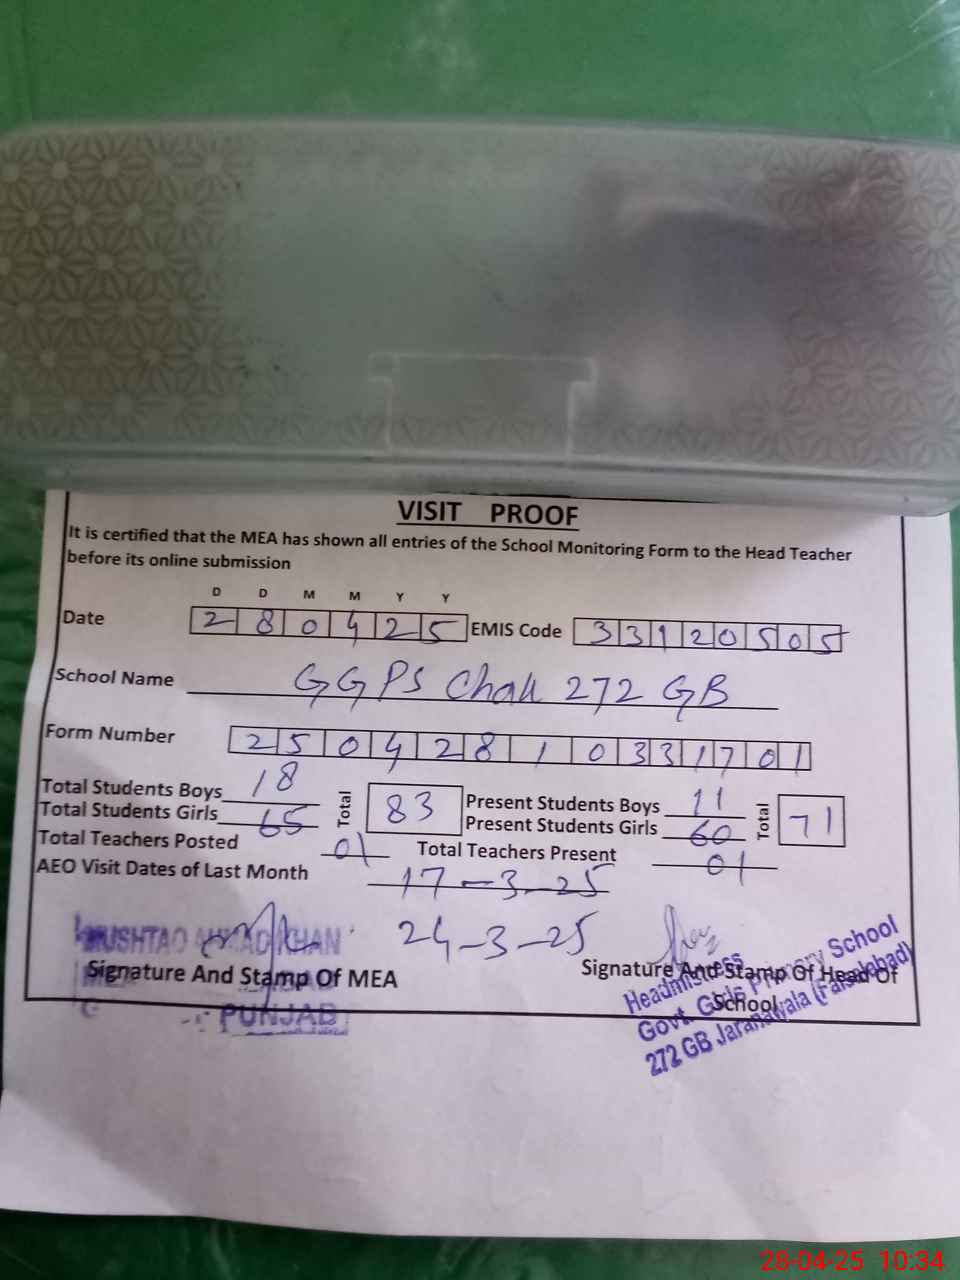 VISIT PROOF
It is certified that the MEA has shown all entries of the School Monitoring Form to the Head Teacher
before its online submission
D D M M Y Y
Date 280425 EMIS Code 33120505
School Name GGPS Chak 272 GB
Form Number 25042810331701
Total Students Boys 18 Total 83 Present Students Boys 11 Total 71
Total Students Girls 65 Present Students Girls 60
Total Teachers Posted 01 Total Teachers Present 01
AEO Visit Dates of Last Month 17-3-25
24-3-25
MUSHTAQ AHMAD KHAN
Signature And Stamp Of MEA
PUNJAB
Signature And Stamp Of Head Of
School
Headmistress
Govt. Girls Primary School
272 GB Jaranwala (Faisalabad)
28-04-25 10:34